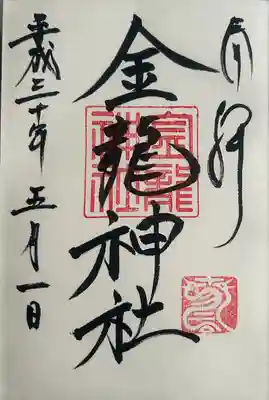 奉拝
金龍神社
金龍神社
平成三十年五月一日